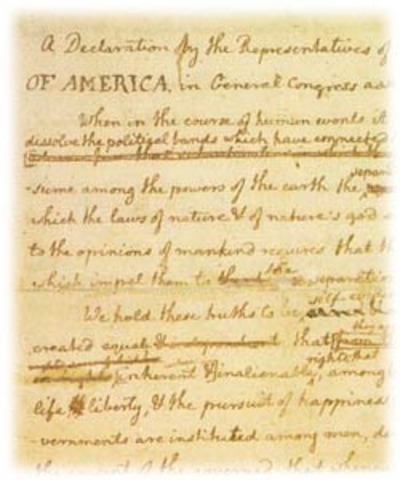 A Declaration by the Representatives of
OF AMERICA, in General Congress as
When in the course of human events it
dissolve the political bands which have connected
-sume among the powers of the earth the separa
which the laws of nature & of nature's god
to the opinions of mankind requires that th
which impel them to the separatio
We hold these truths to be self-ev
created equal & independent that
rights that
inherent & inalienable, among
life liberty, & the pursuit of happiness
-vernments are instituted among men, de
the consent of the governed that whene